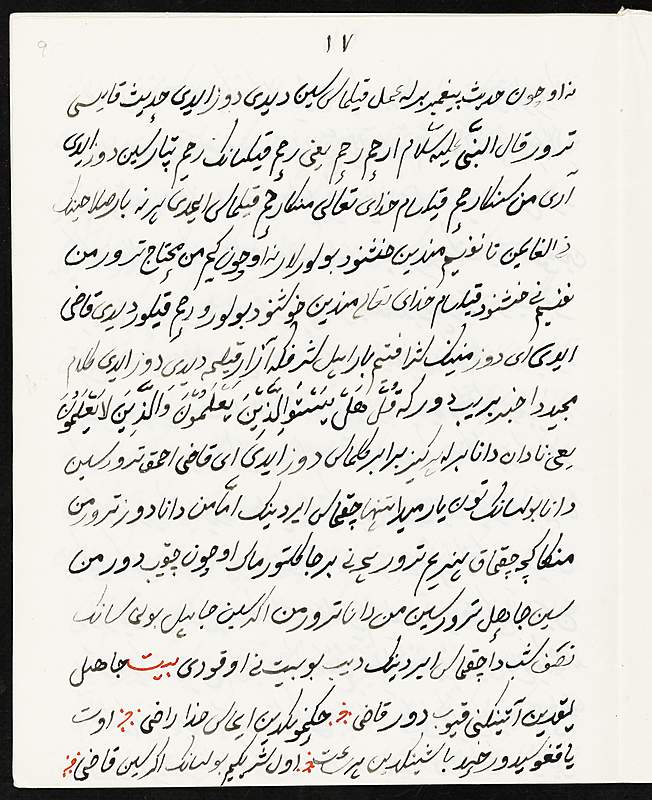 ١٧
نه اوچون حدیث پیغمبر برله عمل قیلماس سین دیدی دوز ایدی حدیث قایسی
ترور قال النبی علیه السلام ارحم رحم یعنی رحم قیلسانک رحم تپارسین دوز ایدی
آری من سنکا رحم قیلسام خدای تعالی منکا رحم قیلماس ایدی هر نه بار صلاحینک
مندین خشنود بولورلار نه اوچون کیم من محتاج ترور من
نفسیم نی خشنود قیلسام خدای تعالی مندین خوشنود بولور و رحم قیلور دیدی قاضی
ایدی ای دوز منینک بارا بیل قیلمه دیدی دوز ایدی کلام
مجید دا خبر بریب دور که قُلْ هَلْ یَسْتَوِی الَّذِیْنَ یَعْلَمُوْنَ وَالَّذِیْنَ لَا یَعْلَمُوْنَ
یعنی نادان دانا برله هرکیز برابر کلماس دوز ایدی ای قاضی احمق ترور سین
دانا بولسانک تون یارمیدا تنها چقماس ایردینک اما من دانا دوز ترور من
منکا کچه چقماق هنریم ترور هیچ نی بر جا کلتورماک اوچون چقیب دور من
سین جاهل ترور سین من دانا ترور من اکر سین جاهل بولماسانک
نصف شب دا چقماس ایردینک دیب بو بیت نی اوقودی بیت جاهل
آتینکنی قیوب دور قاضی ایماس خدا راضی اوت
یاقغوسیدور باشینکدین اول شریکیم بولسانک اکر سین قاضی